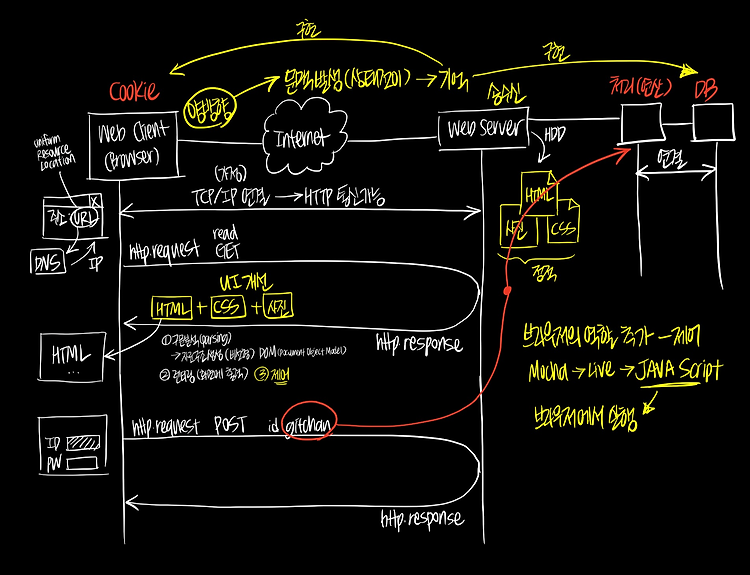 구현
구현
Cookie
양방향 → 문맥발생(상태전이) → 기억
송수신
처리(연산)
DB
Web Client
(Browser)
Internet
Web Server
HDD
Uniform
Resource
Location
주소 URL
DNS
IP
(가상)
TCP/IP 연결 → HTTP 통신가능
연결
HTML
사진
CSS
정적
read
http.request GET
UI 개선
HTML + CSS + 사진
http.response
① 구문분석(parsing)
DOM (Document Object Model)
② 렌더링 (화면에 출력) ③ 제어
HTML
...
브라우저의 역할 추가 - 제어
Mocha → Live → JAVA Script
브라우저에서 실행
ID
PW
http.request POST id gitchan
http.response